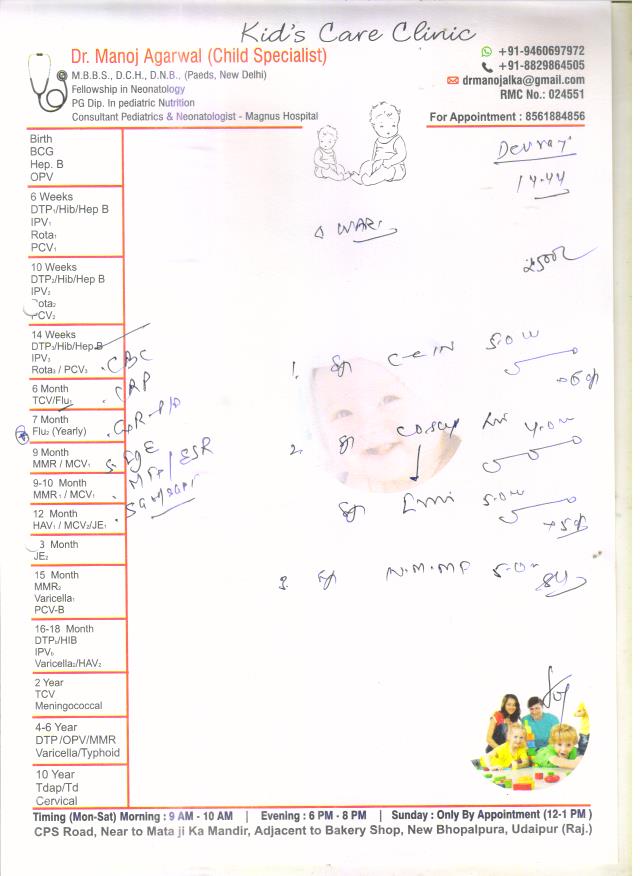 Kid's Care Clinic
Dr. Manoj Agarwal (Child Specialist)
M.B.B.S., D.C.H., D.N.B., (Paeds, New Delhi)
Fellowship in Neonatology
PG Dip. In pediatric Nutrition
Consultant Pediatrics & Neonatologist - Magnus Hospital
+91-9460697972
+91-8829864505
drmanojalka@gmail.com
RMC No.: 024551
For Appointment : 8561884856
Devraj
14.44
Birth
BCG
Hep. B
OPV
6 Weeks
DTP₁/Hib/Hep B
IPV₁
Rota₁
PCV₁
10 Weeks
DTP₂/Hib/Hep B
IPV₂
Rota₂
PCV₂
14 Weeks
DTP₃/Hib/Hep B
IPV₃
Rota₃ / PCV₃
CBC
6 Month
TCV/Flu₁
CRP
7 Month
Flu₂ (Yearly)
9 Month
MMR / MCV₁
IgE
9-10 Month
MMR₁ / MCV₁
ESR
12 Month
HAV₁ / MCV₂/JE₁
3 Month
JE₂
15 Month
MMR₂
Varicella₁
PCV-B
16-18 Month
DTP₅/HIB
IPV₆
Varicella₂/HAV₂
2 Year
TCV
Meningococcal
4-6 Year
DTP/OPV/MMR
Varicella/Typhoid
10 Year
Tdap/Td
Cervical
WARI
1. Syp 5.0
2. Syp 4.0
Syp 5.0
3. Syp 5.0
Timing (Mon-Sat) Morning : 9 AM - 10 AM | Evening : 6 PM - 8 PM | Sunday : Only By Appointment (12-1 PM )
CPS Road, Near to Mata ji Ka Mandir, Adjacent to Bakery Shop, New Bhopalpura, Udaipur (Raj.)